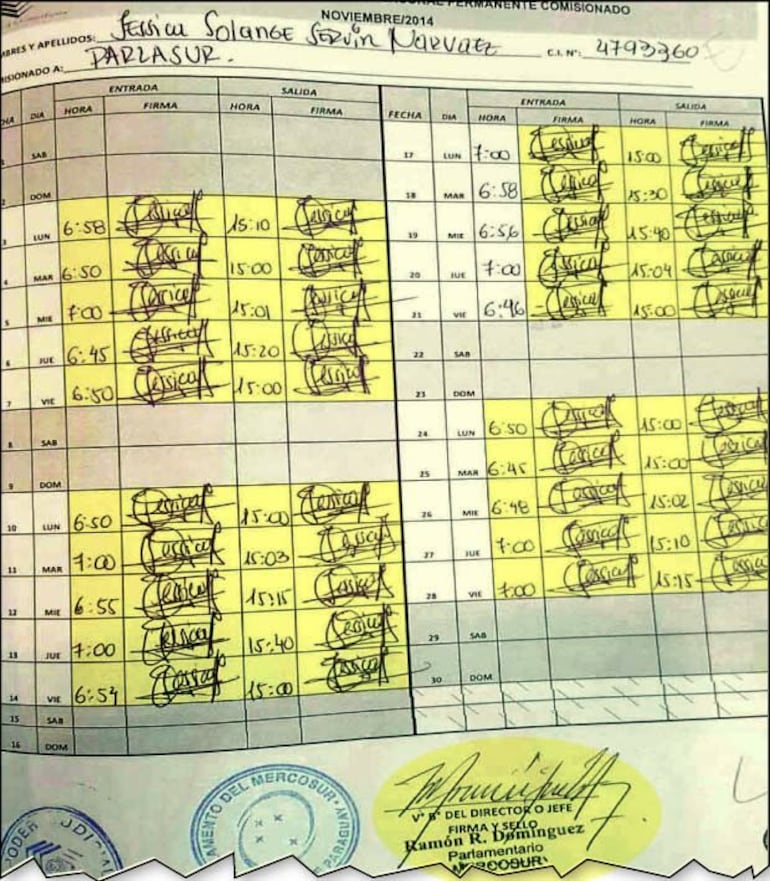 PERMANENTE COMISIONADO
NOVIEMBRE/2014
BRES Y APELLIDOS: Jessica Solange Servín Narvaez C.I. Nº: 4793360
ISIONADO A: PARLASUR.
HA DIA ENTRADA SALIDA
HORA FIRMA HORA FIRMA
1 SAB
2 DOM
3 LUN 6:58 Jessica 15:10 Jessica
4 MAR 6:50 Jessica 15:00 Jessica
5 MIE 7:00 Jessica 15:01 Jessica
6 JUE 6:45 Jessica 15:20 Jessica
7 VIE 6:50 Jessica 15:00 Jessica
8 SAB
9 DOM
10 LUN 6:50 Jessica 15:00 Jessica
11 MAR 7:00 Jessica 15:03 Jessica
12 MIE 6:55 Jessica 15:15 Jessica
13 JUE 7:00 Jessica 15:40 Jessica
14 VIE 6:57 Jessica 15:00 Jessica
15 SAB
16 DOM
FECHA DIA ENTRADA SALIDA
HORA FIRMA HORA FIRMA
17 LUN 7:00 Jessica 15:00 Jessica
18 MAR 6:58 Jessica 15:30 Jessica
19 MIE 6:56 Jessica 15:40 Jessica
20 JUE 7:00 Jessica 15:04 Jessica
21 VIE 6:46 Jessica 15:00 Jessica
22 SAB
23 DOM
24 LUN 6:50 Jessica 15:00 Jessica
25 MAR 6:45 Jessica 15:00 Jessica
26 MIE 6:48 Jessica 15:02 Jessica
27 JUE 7:00 Jessica 15:10 Jessica
28 VIE 7:00 Jessica 15:15 Jessica
29 SAB
30 DOM
PODER JUDICIAL
AMENTO DEL MERCOSUR
PARAGUAY
Vº Bº DEL DIRECTOR O JEFE
FIRMA Y SELLO
Ramón R. Domínguez
Parlamentario
MERCOSUR